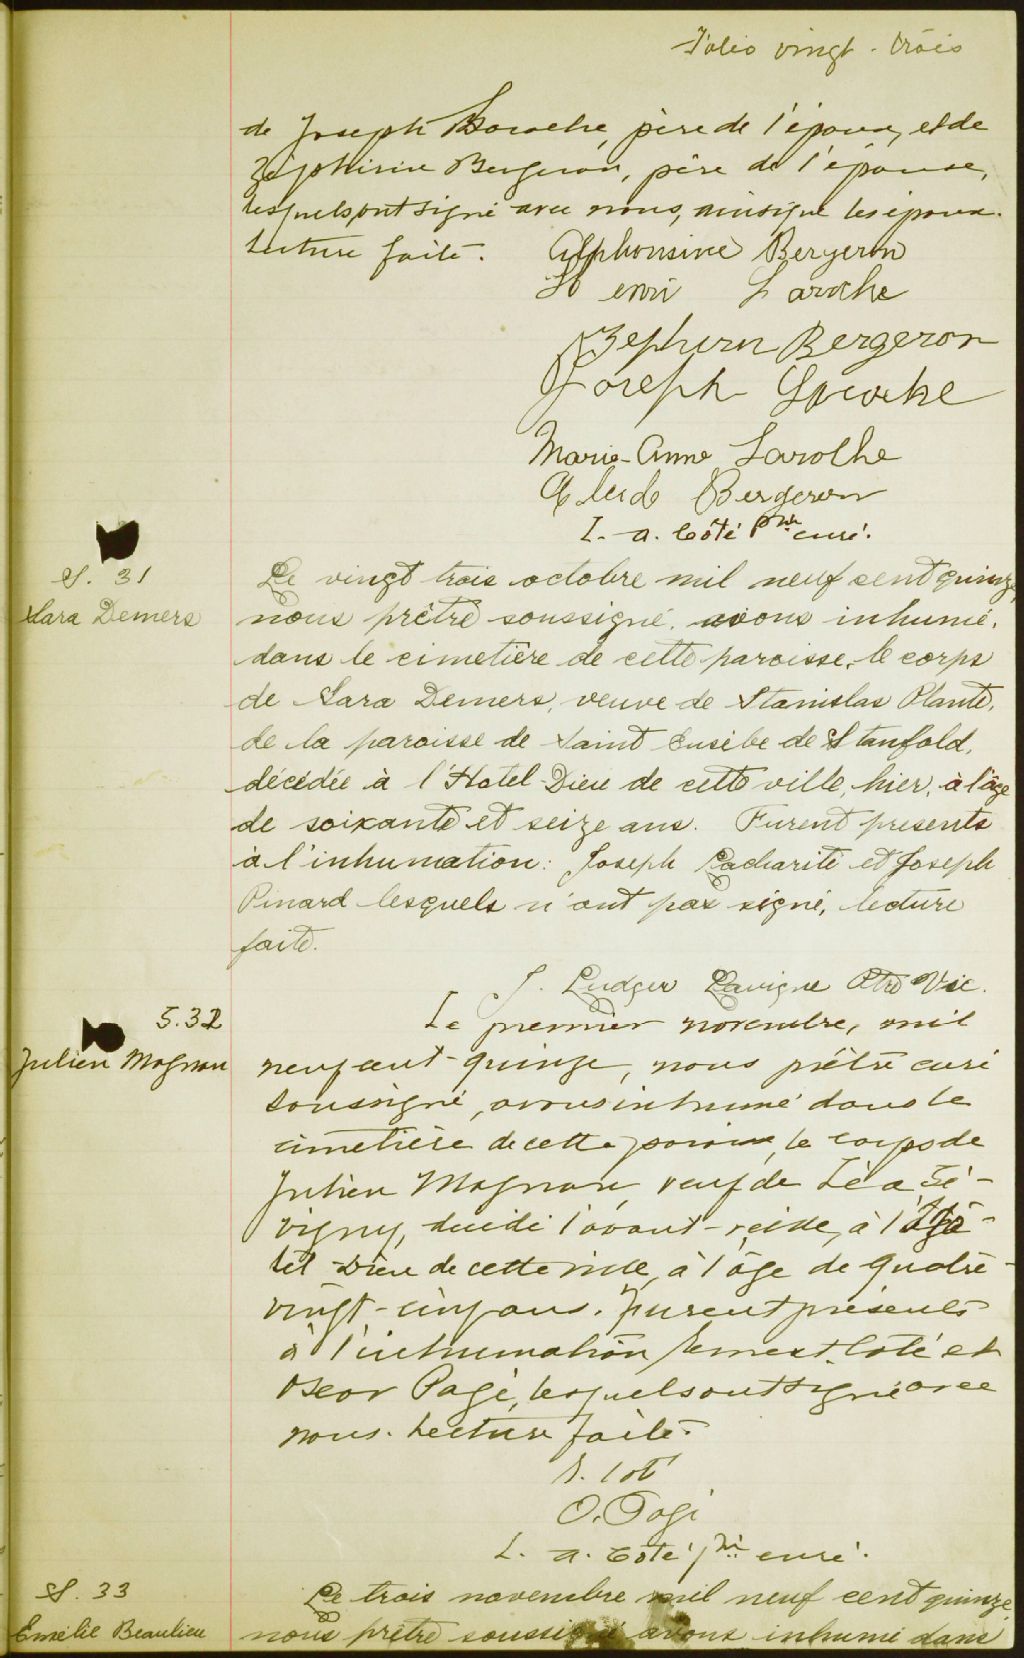 Folio vingt-trois
de Joseph Laroche, père de l'époux, et de
Zéphirin Bergeron, père de l'épouse,
lesquels ont signé avec nous, ainsi que les époux.
Lecture faite. Alphonsine Bergeron
Henri Laroche
Zephirin Bergeron
Joseph Laroche
Marie-Anne Laroche
Bergeron
L. A. Côté ptre curé.
S. 31
Sara Demers
Le vingt trois octobre mil neuf cent quinze,
nous prêtre soussigné, avons inhumé,
dans le cimetière de cette paroisse, le corps
de Sara Demers, veuve de Stanislas Plante,
de la paroisse de Saint Eusèbe de Stanfold,
décédée à l'Hotel-Dieu de cette ville, hier, à l'âge
de soixante et seize ans. Furent presents
à l'inhumation: Joseph Lacharité et Joseph
Pinard lesquels n'ont pas signé, lecture
faite.
J. Ludger Lavigne Ptre Vic.
S. 32
Julien Magnan
Le premier novembre, mil
neuf cent-quinze, nous prêtre curé
soussigné, avons inhumé dans le
cimetière de cette paroisse, le corps de
Julien Magnan, veuf de Léa Sé-
vigny, décédé l'avant-veille, à l'Hô-
tel-Dieu de cette ville, à l'âge de quatre-
vingt-cinq ans. Furent présents
à l'inhumation Ernest Côté et
Oscar Pagé, lesquels ont signé avec
nous. Lecture faite.
E. Coté
O. Pagé
L. A. Côté ptre curé.
S. 33
Emélie Beaulieu
Le trois novembre mil neuf cent quinze,
nous prêtre soussigné avons inhumé dans